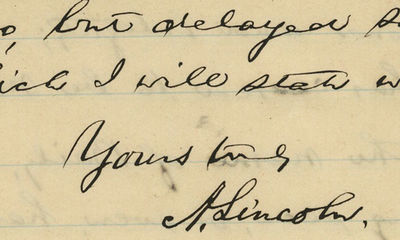 but delayed
I will state
Yours truly
A. Lincoln.